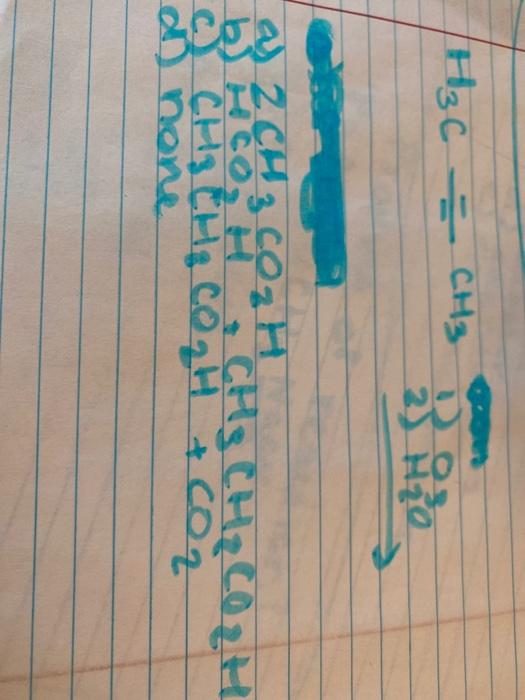 H₃C ≡ CH₃
1) O₃
2) H₂O
a) 2CH₃CO₂H
b) HCO₂H + CH₃CH₂CO₂H
c) CH₃CH₂CO₂H + CO₂
d) none